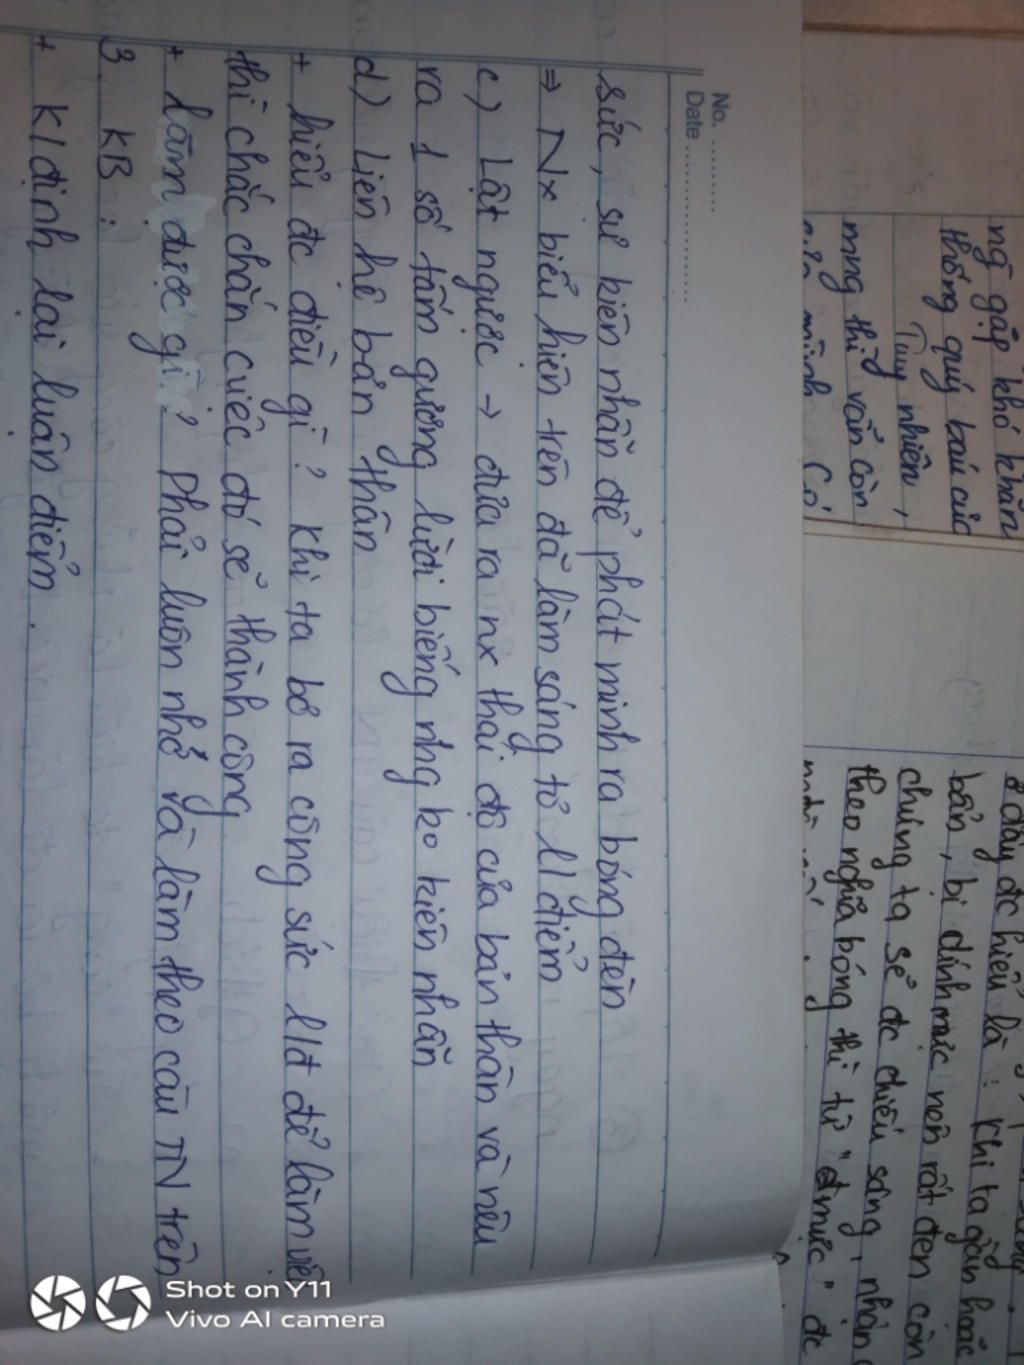 No. .........
Date ....................
sức, sự kiên nhẫn để phát minh ra bóng đèn
=> Nx biểu hiện trên đã làm sáng tỏ l/điểm
c) Lật ngược → đưa ra nx thái độ của bản thân và nêu
ra 1 số tấm gương lười biếng nhg ko kiên nhẫn
d) Liên hệ bản thân
+ hiểu đc điều gì? Khi ta bỏ ra công sức l/đ để làm việc
thì chắc chắn cviệc đó sẽ thành công
+ làm được gì? Phải luôn nhớ và làm theo câu TN trên
3. KB:
+ K/định lại luận điểm.
gặp khó khăn
thống quý báu của
Tuy nhiên,
mng thì vẫn còn
mình có
ở đây đc hiểu là: Khi ta gần hoặc
bẩn, bị dính mực nên rất đen còn
chúng ta sẽ đc chiếu sáng, nhận
theo nghĩa bóng thì từ "mực" đc
Shot on Y11
Vivo AI camera